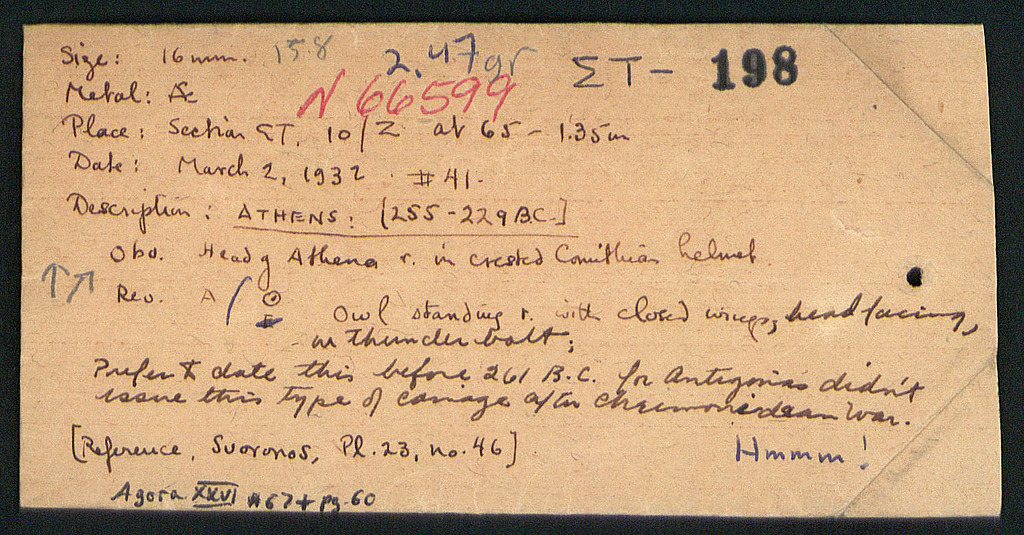 Size: 16 mm. 15.8 2.47 gr ΣΤ - 198
Metal: Æ N 66599
Place: Section ΣΤ, 10/Ζ at 65 - 1.35m
Date: March 2, 1932. #41.
Description: ATHENS: [255-229 B.C.]
Obv. Head of Athena r. in crested Corinthian helmet.
↑↗ Rev. A / Θ E Owl standing r. with closed wings, head facing,
on thunderbolt;
Prefer to date this before 261 B.C. for Antigonus didn't
issue this type of coinage after Chremonidean War.
[Reference, Svoronos, Pl. 23, no. 46] Hmmm!
Agora XXVI #67+ pg. 60